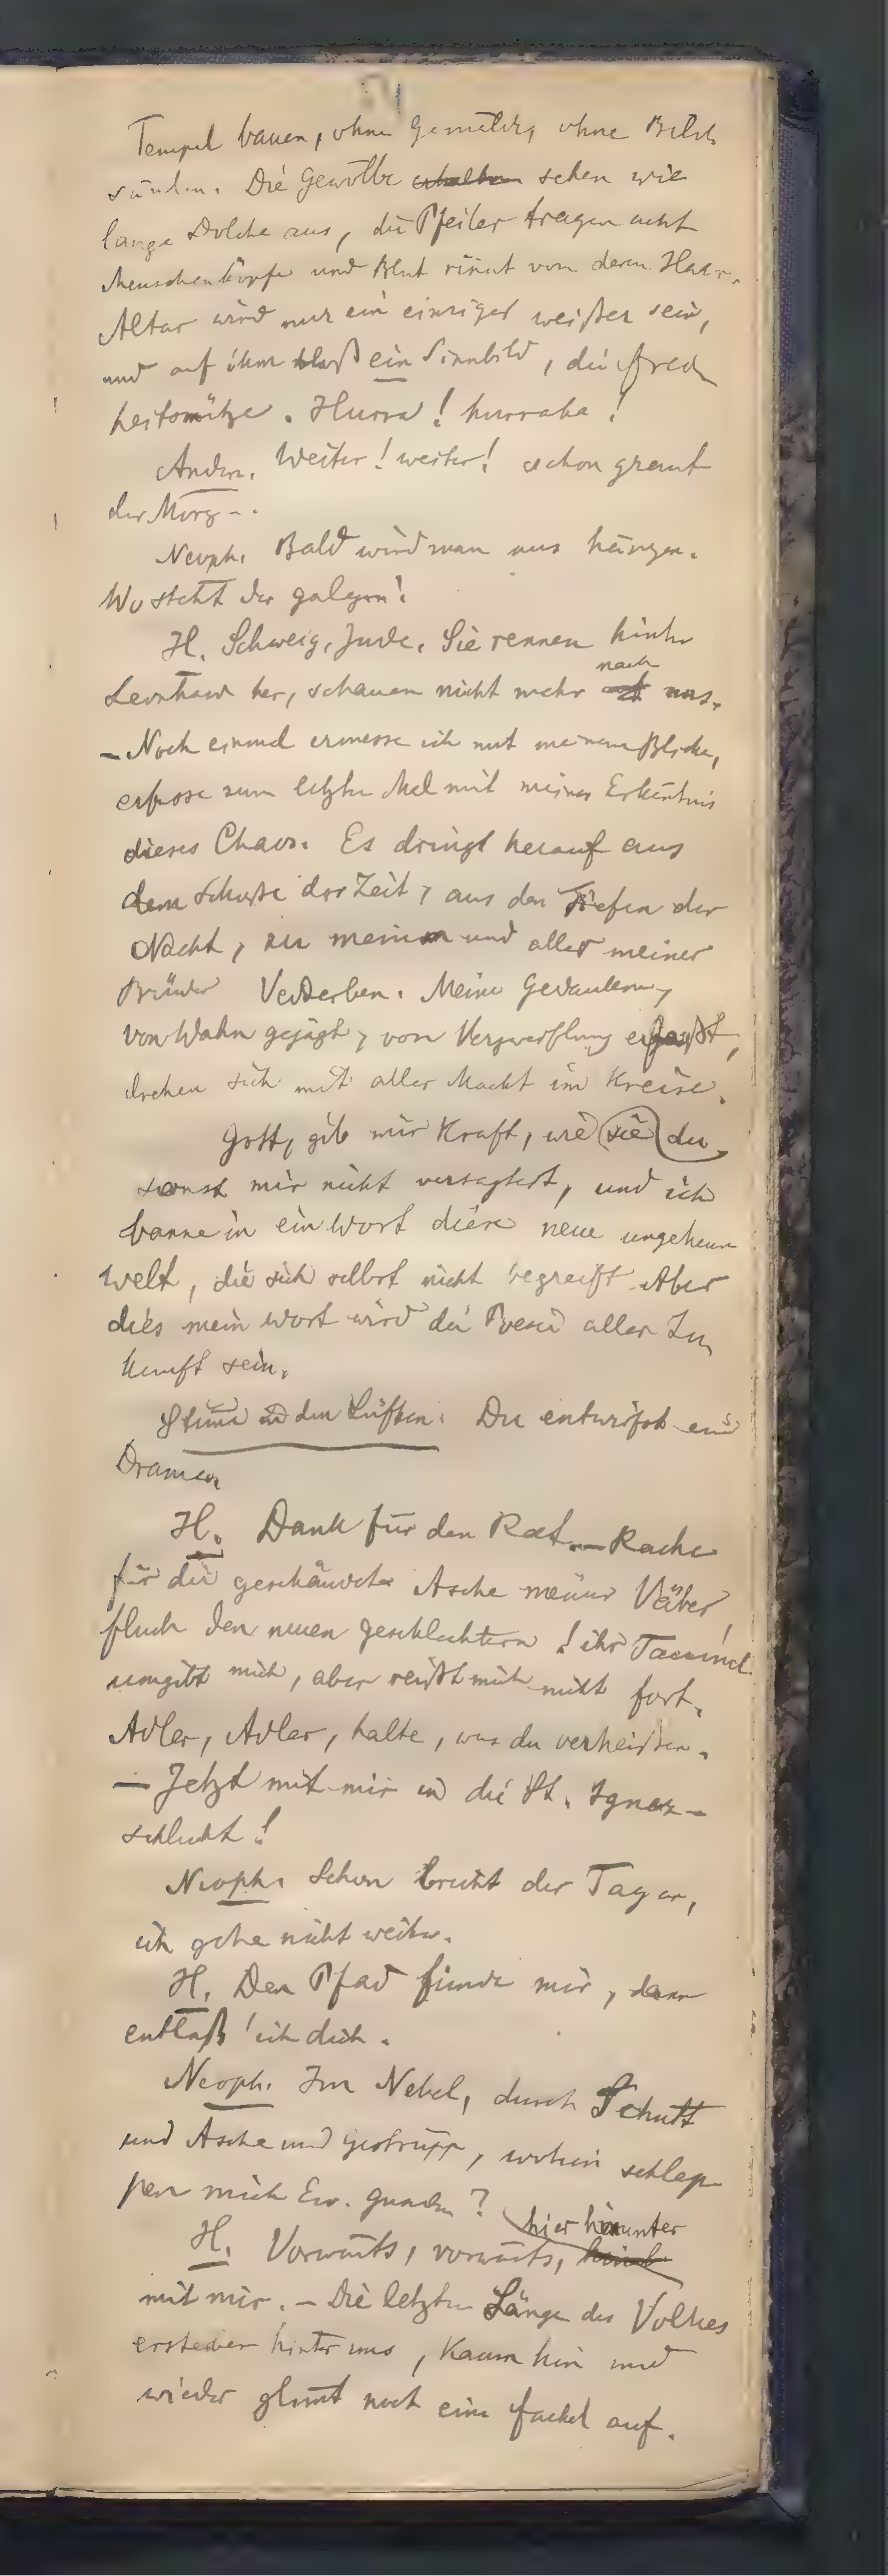 Tempel bauen, ohne Gemälde, ohne Bild
säulen. Die Gewölbe erhalten sehen wie
lange Dolche aus, die Pfeiler tragen acht
Menschenköpfe und Blut rinnt von deren Haar.
Altar wird nur ein einziger weißer sein,
und auf ihm bloß ein Sinnbild, die Frei
heitsmütze. Hurra! hurraha!
Andre. Weiter! weiter! schon graut
der Morg-.
Neoph. Bald wird man uns hängen.
Wo steht der galgen?
H. Schweig, Jude. Sie rennen hinter
Leonhard her, schauen nicht mehr nach uns.
– Noch einmal ermesse ich mit meinem Blicke,
erfasse zum letzten Mal mit meiner Erkentnis
dieses Chaos. Es dringt herauf aus
dem Schoße der Zeit, aus den Tiefen der
Nacht, zu meinem und aller meiner
Brüder Verderben. Meine Gedanken,
von Wahn gejagt, von Verzweiflung erfaßt,
drehen sich mit aller Macht im Kreise.
Gott, gib mir Kraft, wie sie du
sonst mir nicht versagtest, und ich
banne in ein Wort diese neue ungeheure
Welt, die sich selbst nicht begreift. Aber
dies mein Wort wird die Poesie aller Zu
kunft sein.
Stimme in den Lüften: Du entwirfst ein
Drama
H. Dank für den Rat. – Rache
für die geschändete Asche meiner Väter,
fluch den neuen geschlechtern! ihr Taumel
umgibt mich, aber reißt mich nicht fort.
Adler, Adler, halte, was du verheißen.
– Jetzt mit mir in die St. Ignaz-
schlucht!
Neoph. Schon bricht der Tag an,
ich gehe nicht weiter.
H. Den Pfad finde mir, dann
entlaß' ich dich.
Neoph. Im Nebel, durch Schutt
und Asche und Gestrüpp, wohin schlep
pen mich Ew. Gnaden?
H. Vorwärts, vorwärts, hier hinunter
mit mir. – Die letzten Sänge des Volkes
ersterben hinter uns, kaum hin und
wieder glimt noch eine fackel auf.